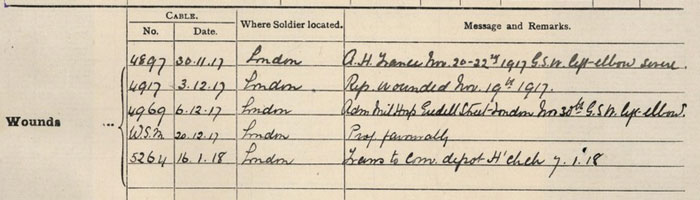 CABLE.
No. Date. Where Soldier located. Message and Remarks.
4897 30.11.17 London A.H. France Nov. 20-22nd 1917 G.S.W. left elbow severe.
4917 3.12.17 London. Rep. wounded Nov. 19th 1917.
4969 6.12.17 London Adm Mil Hosp Endell Street London Nov 30th G.S.W. left elbow S.
Wounds ... W.S.M. 20.12.17 London Prog favourably
5264 16.1.18 London Trans to Com. depot H'chch 7.1.18